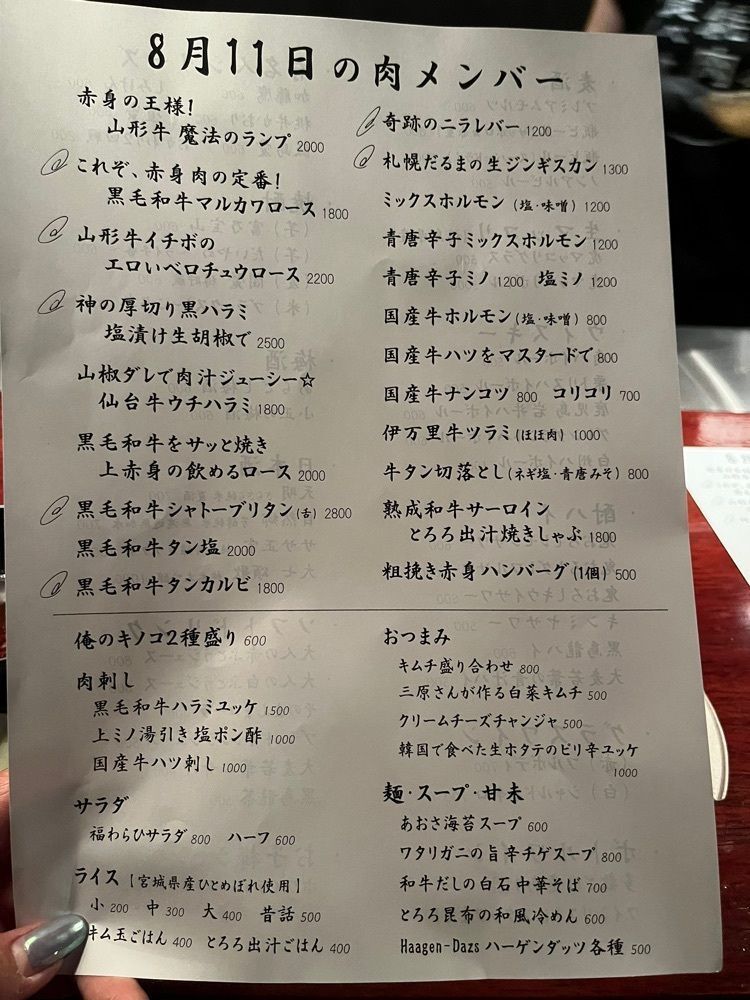 8月11日の肉メンバー
赤身の王様!
山形牛 魔法のランプ 2000
これぞ、赤身肉の定番!
黒毛和牛マルカワロース 1800
山形牛イチボの
エロいベロチュウロース 2200
神の厚切り黒ハラミ
塩漬け生胡椒で 2500
山椒ダレで肉汁ジューシー☆
仙台牛ウチハラミ 1800
黒毛和牛をサッと焼き
上赤身の飲めるロース 2000
黒毛和牛シャトーブリタン(舌) 2800
黒毛和牛タン塩 2000
黒毛和牛タンカルビ 1800
奇跡のニラレバー 1200
札幌だるまの生ジンギスカン 1300
ミックスホルモン (塩・味噌) 1200
青唐辛子ミックスホルモン 1200
青唐辛子ミノ 1200 塩ミノ 1200
国産牛ホルモン (塩・味噌) 800
国産牛ハツをマスタードで 800
国産牛ナンコツ 800 コリコリ 700
伊万里牛ツラミ (ほほ肉) 1000
牛タン切落とし (ネギ塩・青唐みそ) 800
熟成和牛サーロイン
とろろ出汁焼きしゃぶ 1800
粗挽き赤身ハンバーグ (1個) 500
俺のキノコ2種盛り 600
肉刺し
黒毛和牛ハラミユッケ 1500
上ミノ湯引き塩ポン酢 1000
国産牛ハツ刺し 1000
サラダ
福わらひサラダ 800 ハーフ 600
ライス [宮城県産ひとめぼれ使用]
小 200 中 300 大 400 昔話 500
キム玉ごはん 400 とろろ出汁ごはん 400
おつまみ
キムチ盛り合わせ 800
三原さんが作る白菜キムチ 500
クリームチーズチャンジャ 500
韓国で食べた生ホタテのピリ辛ユッケ
1000
麺・スープ・甘未
あおさ海苔スープ 600
ワタリガニの旨辛チゲスープ 800
和牛だしの白石中華そば 700
とろろ昆布の和風冷めん 600
Haagen-Dazs ハーゲンダッツ各種 500